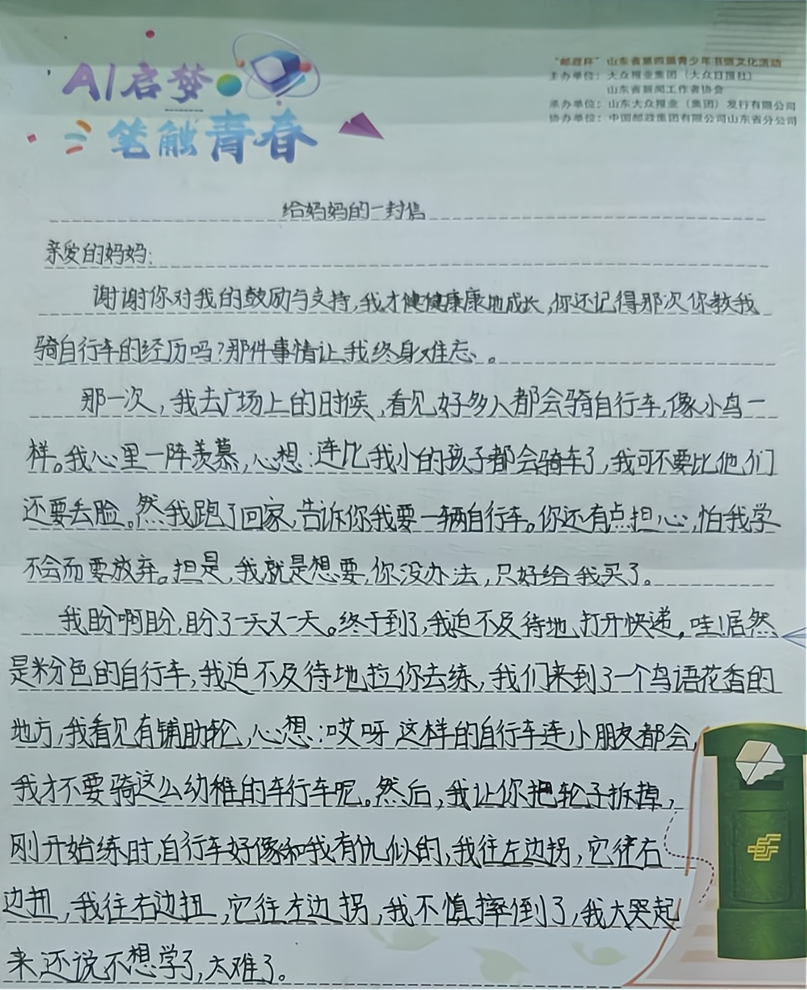 AI启梦
笔触青春
"邮政杯"山东省第四届青少年书信文化活动
主办单位：大众报业集团（大众日报社）
山东省新闻工作者协会
承办单位：山东大众报业（集团）发行有限公司
协办单位：中国邮政集团有限公司山东省分公司
给妈妈的一封信
亲爱的妈妈：
谢谢你对我的鼓励与支持，我才健健康康地成长，你还记得那次你教我
骑自行车的经历吗？那件事情让我终身难忘。
那一次，我去广场上的时候，看见好多人都会骑自行车，像小鸟一
样。我心里一阵羡慕，心想：连比我小的孩子都会骑车了，我可不要比他们
还要丢脸。然我跑了回家，告诉你我要一辆自行车。你还有点担心，怕我学
不会而要放弃。担是，我就是想要，你没办法，只好给我买了。
我盼啊盼，盼了一天又一天。终于到了，我迫不及待地打开快递，哇！居然
是粉色的自行车，我迫不及待地拉你去练，我们来到了一个鸟语花香的
地方，我看见有辅助轮，心想：哎呀 这样的自行车连小朋友都会，
我才不要骑这么幼稚的车行车呢。然后，我让你把轮子拆掉，
刚开始练时，自行车好像和我有仇似的，我往左边拐，它往右
边扭，我往右边扭，它往左边拐，我不慎摔倒了，我大哭起
来，还说不想学了，太难了。